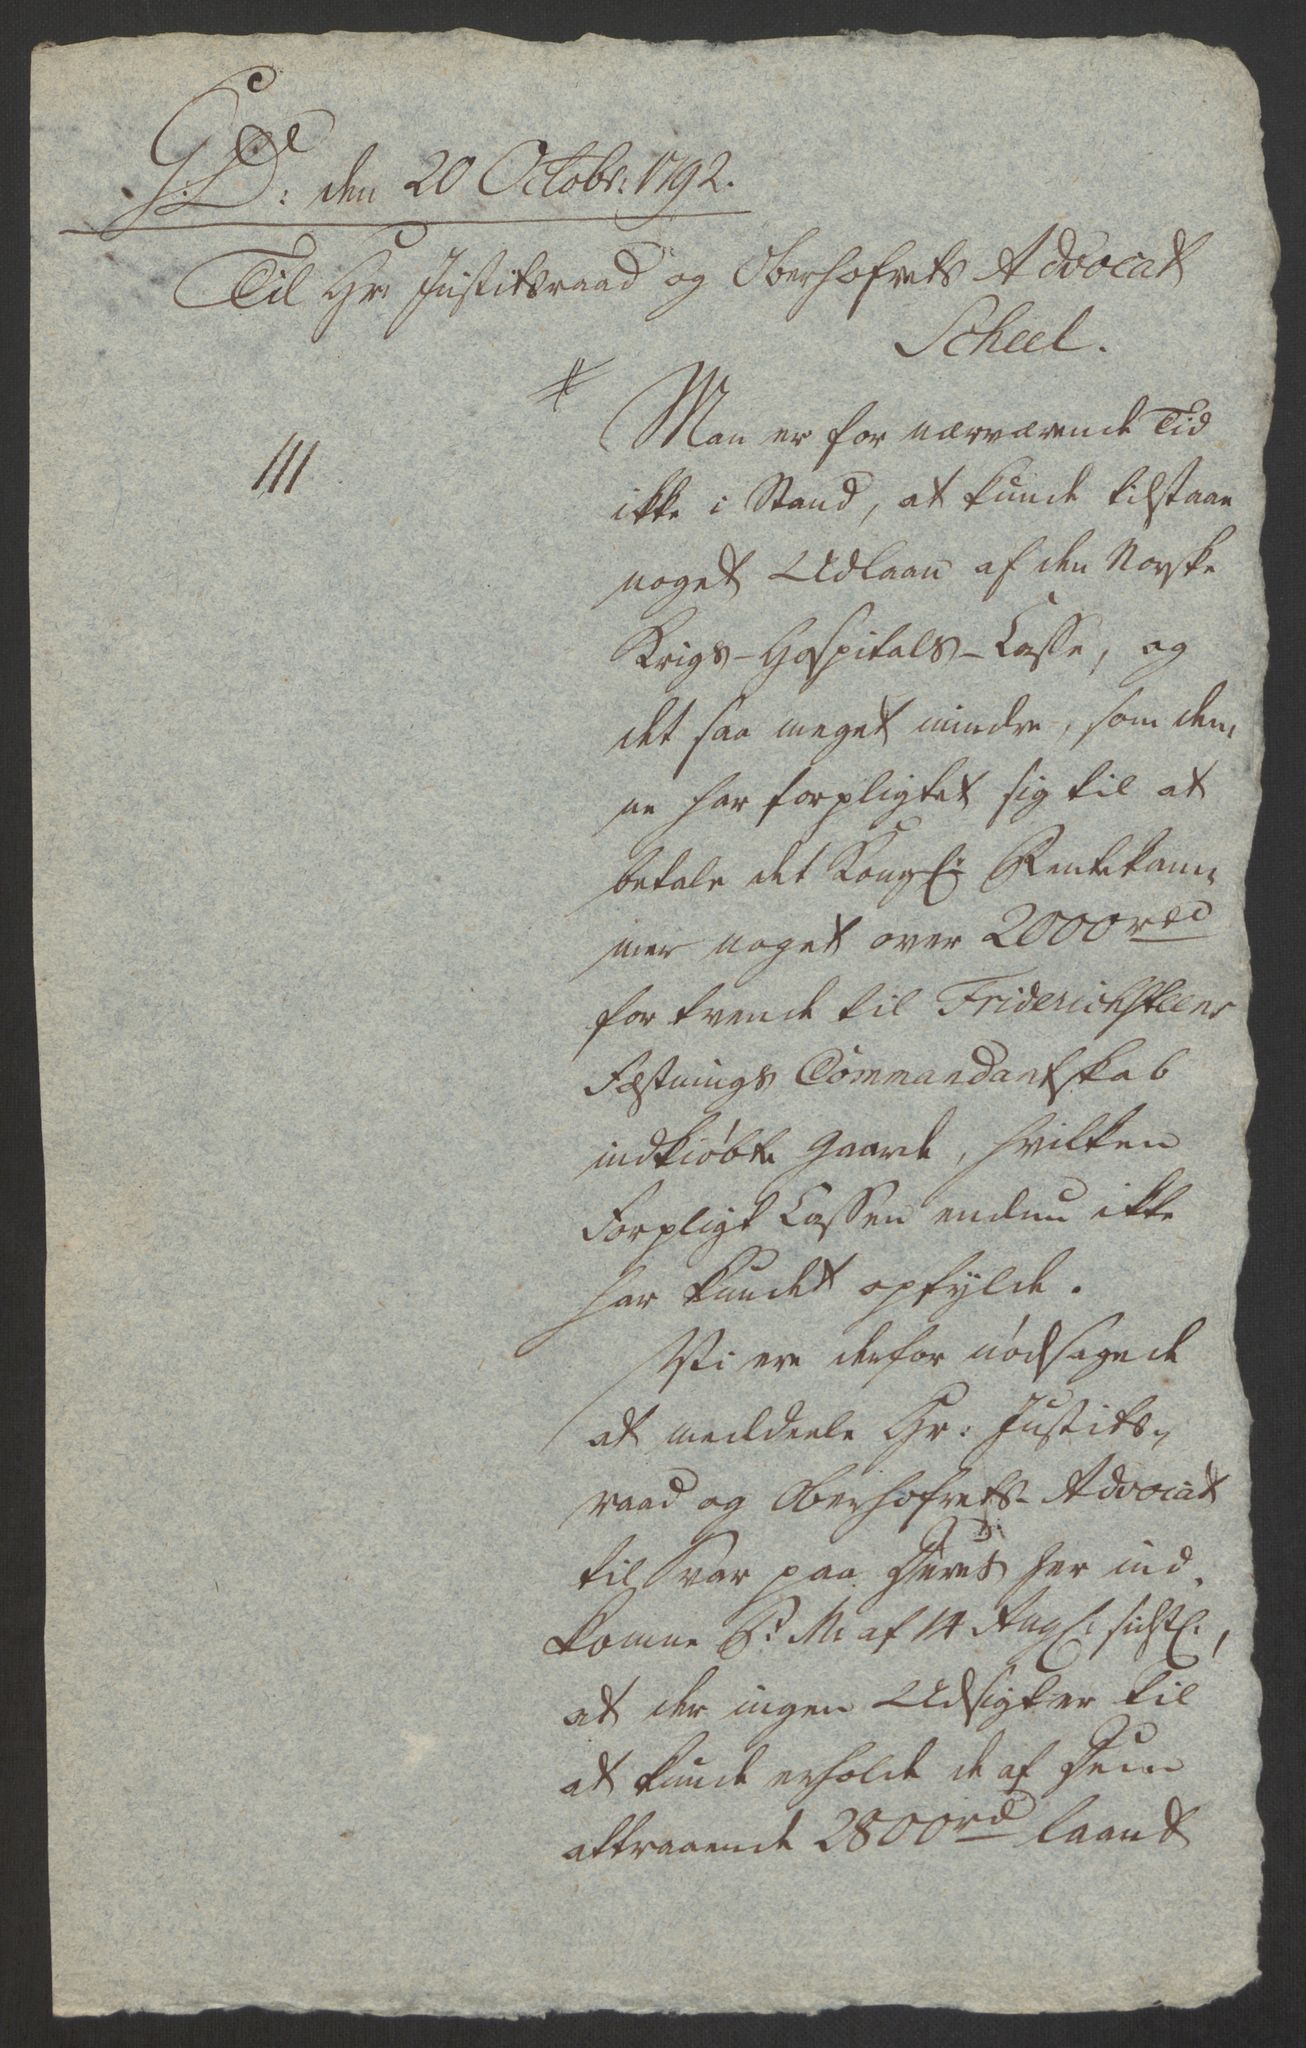 G: D: den 20 Octobr: 1792.
Til Hr: Justitsraad og Oberhofrets Advocat
Scheel.
Man er for nærværende Tid
111
ikke i Stand, at kunde tilstaae
noget Udlaan af den Norske
Krigs-Hospitals-Casse, og
det saa meget mindre, som den-
ne har forpligtet sig til at
betale det Kongl: Rentekam-
mer noget over 2000 rd
for tvende til Friderichsteens
Fæstnings Commandantskab
indkiøbte Gaarde, hvilken
Forpligt Cassen endnu ikke
har kundet opfylde.
Vi ere derfor nødsagede
at meddeele Hr: Justits-
raad og Oberhofrets-Advocat
til Svar paa Deres her ind-
komne P: M: af 14 Aug: sidstl:,
at der ingen Udsigt er til
at kunde erholde de af Dem
attraaende 2800 rd laant